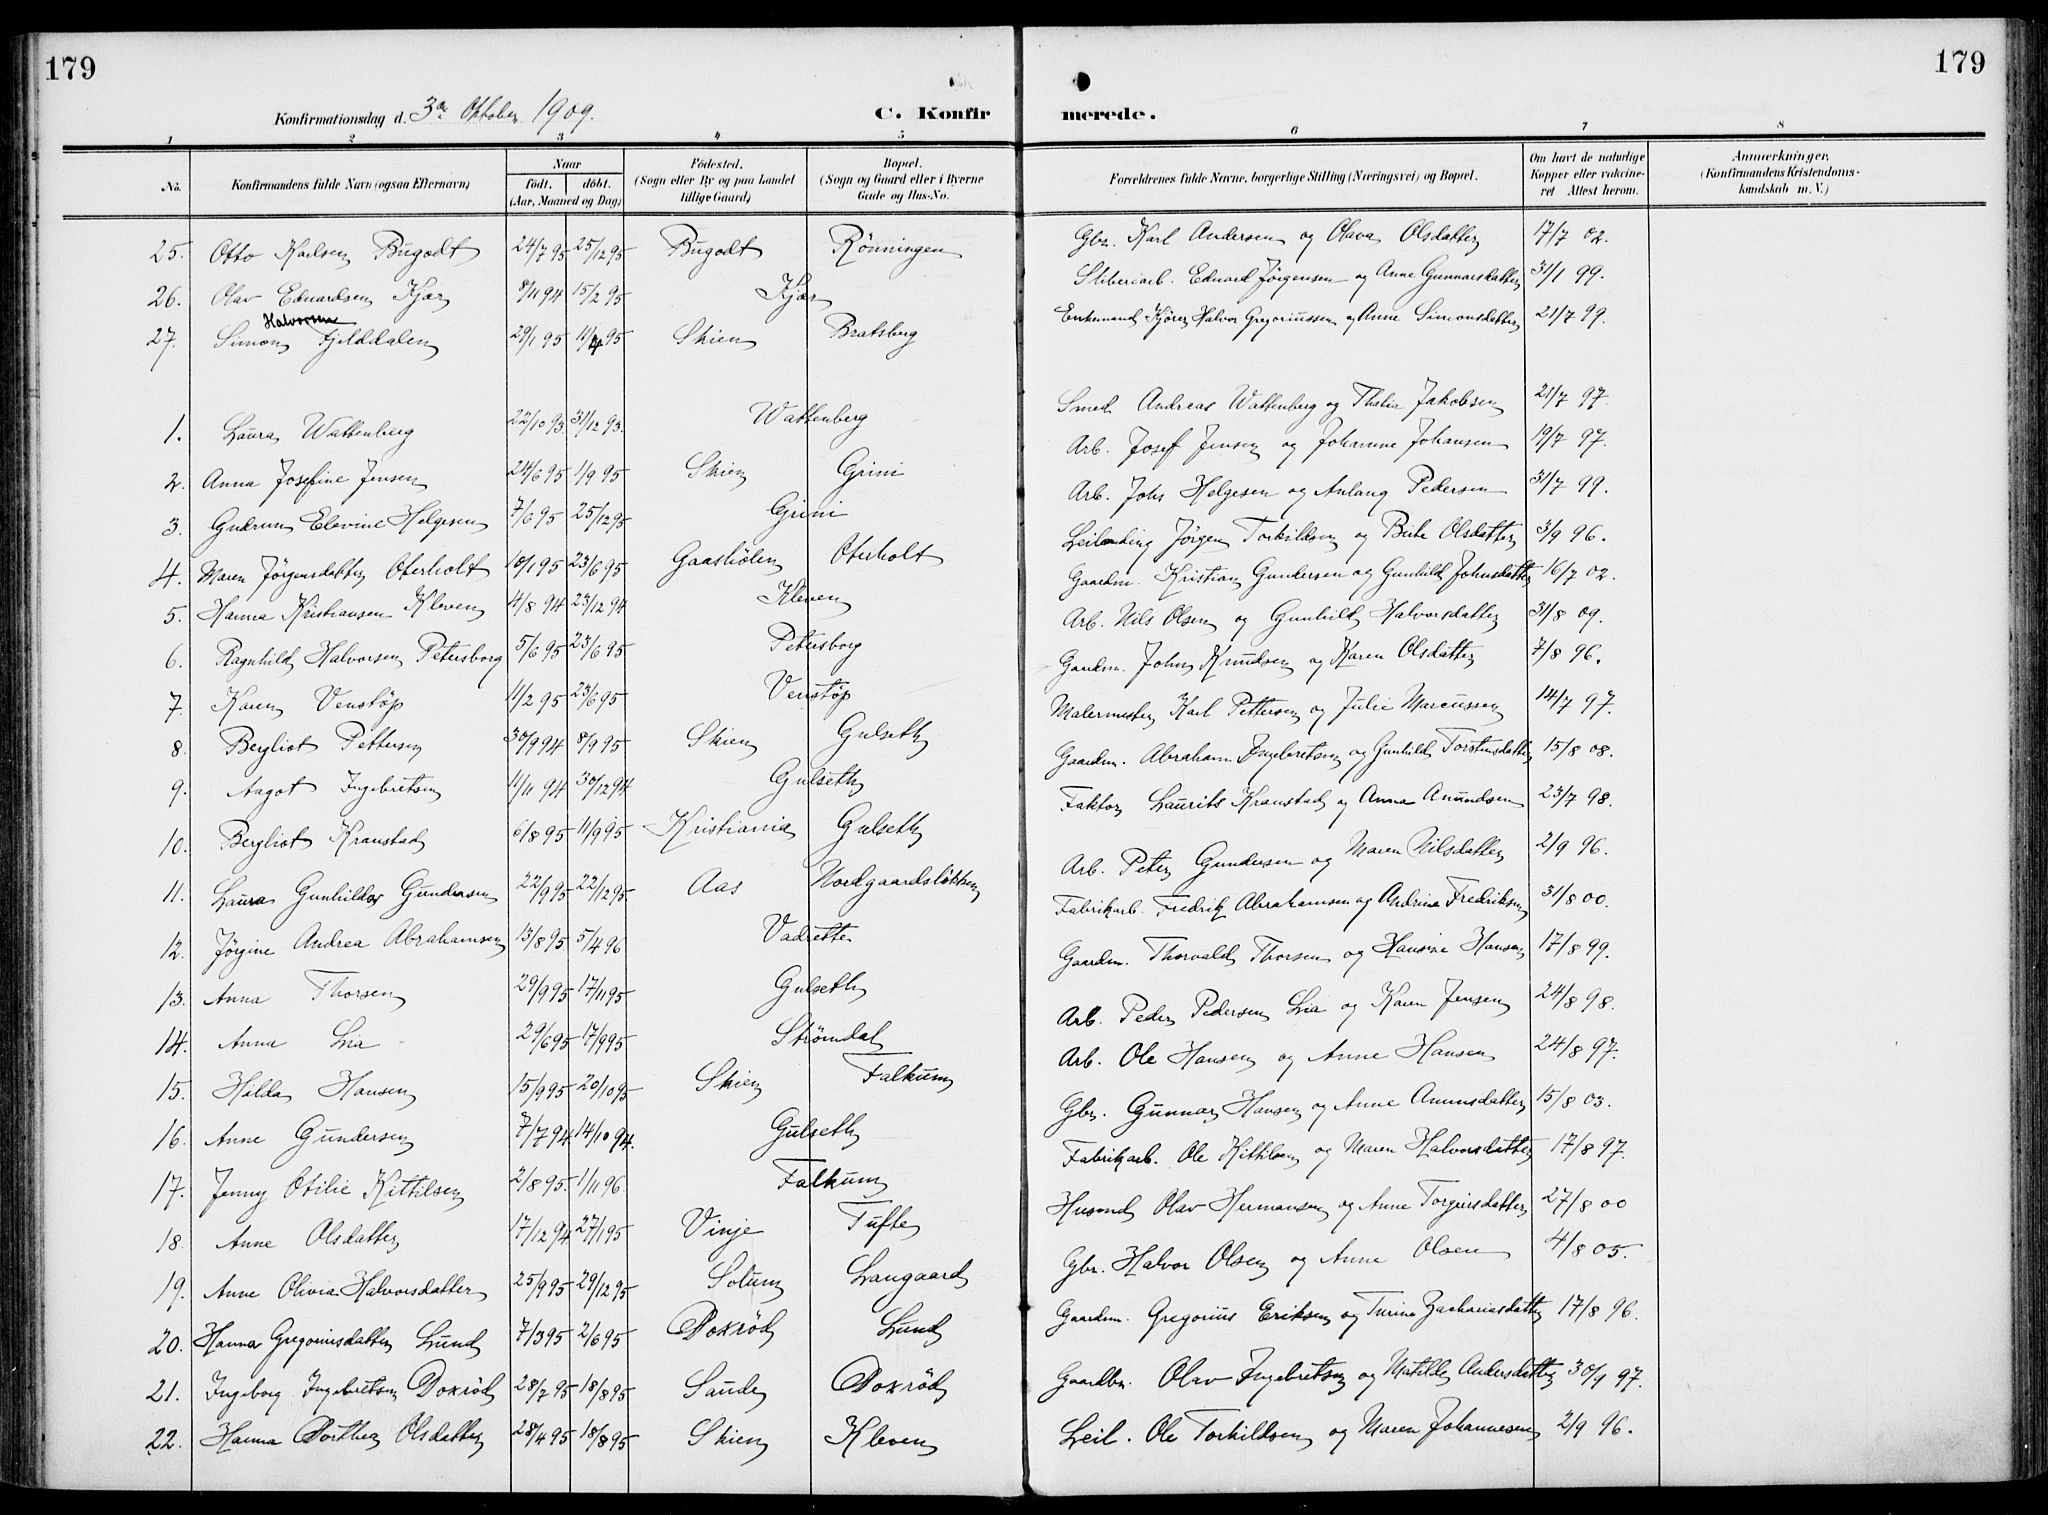 179
179
Konfirmationsdag d. 3die Oktober 1909.
C. Konfirmerede.
1 2 3 4 5 6 7 8
No. Konfirmandens fulde Navn (ogsaa Efternavn) Naar födt. döbt. (Aar, Maaned og Dag) Födested. (Sogn eller By og paa Landet tillige Gaard) Bopæl. (Sogn og Gaard eller i Byerne Gade og Hus-No. Forældrenes fulde Navne, borgerlige Stilling (Næringsvei) og Bopæl. Om havt de naturlige Kopper eller vakcineret Attest herom. Anmærkninger. (Konfirmandens Kristendomskundskab m. V.)
25. Otto Karlsen Bugodt 24/7 95 25/12 95 Bugodt Rönningen Gbr. Karl Andersen og Olava Olsdatter 17/7 02.
26. Olav Eduardsen Kjær 8/11 94 15/2 95 Kjær Sliberiarb. Eduard Jørgensen og Anne Gunnarsdatter 31/1 99.
27. Simon Halvorsen Fjelddalen 29/1 95 11/4 95 Skien Bratsberg Enkemand Kjører Halvor Gregoriussen og Anne Simonsdatter 21/7 99.
1. Laura Wattenberg 22/10 93. 31/12 93. Wattenberg Smed Andreas Wattenberg og Thalia Jakobsen 21/7 97.
2. Anna Josefine Jensen 24/6 95 1/9 95 Skien Grini Arb. Josef Jensen og Johanne Johansen 19/7 97.
3. Gudrun Elevine Helgesen 7/6 95 25/12 95 Grini Arb. Johs Helgesen og Anlaug Pedersen 31/7 99.
4. Maren Jørgensdatter Oterholt 10/1 95 23/6 95 Gaashölen Oterholt Leilending Jørgen Torkildsen og Berte Olsdatter 3/9 96.
5. Hanna Kristiansen Kleven 4/8 94 23/12 94 Kleven Gaardm. Kristian Gundersen og Gunhild Johnsdatter 16/7 02.
6. Ragnhild Halvorsen Petersborg 5/6 95 23/6 95 Petersborg Arb. Nils Olsen og Gunhild Halvorsdatter 31/8 09.
7. Karen Venstøp 11/2 95 23/6 95 Venstøp Gaardm. John Knudsen og Karen Olsdatter 7/8 96.
8. Bergliot Pettersen 30/9 94 8/9 95 Skien Gulseth Malermester Karl Pettersen og Julie Marcussen 14/7 97.
9. Aagot Ingebretsen 11/11 94 30/12 94 Gulseth Gaardm. Abraham Ingebretsen og Gunhild Torstensdatter 15/8 08.
10. Bergliot Kranstad 6/8 95 11/9 95 Kristiania Gulseth Faktor Laurits Kranstad og Anna Amundsen 23/7 98.
11. Laura Gunhilda Gundersen 22/9 95 22/12 95 Aas Nordgaardsløkken Arb. Peter Gundersen og Maren Nilsdatter 2/9 96.
12. Jørgine Andrea Abrahamsen 13/8 95 5/4 96 Vadrette Fabrikarb. Fredrik Abrahamsen og Andrine Fredriksen 31/8 00.
13. Anna Thorsen 29/9 95 17/11 95 Gulseth Gaardm. Thorvald Thorsen og Hansine Hansen 17/8 99.
14. Anna Lia 29/6 95 17/9 95 Strömdal Arb. Peder Pedersen Lia og Karen Jensen 24/8 98.
15. Hilda Hansen 15/9 95 20/10 95 Skien Falkum Arb. Ole Hansen og Anne Hansen 24/8 97.
16. Anne Gundersen 7/7 94 14/10 94. Gulseth Gbr. Gunnar Hansen og Anne Amunsdatter 15/8 03.
17. Jenny Otilie Kittilsen 2/8 95. 1/11 96. Falkum Fabrikarb. Ole Kittilsen og Maren Halvorsdatter 17/8 97.
18. Anne Olsdatter 17/12 94 27/1 95 Vinje Tufte Husmd Olav Hermansen og Anne Torgeirsdatter 27/8 00
19. Anne Olivia Halvorsdatter 25/9 95 29/12 95 Solum Langaard Gbr. Halvor Olsen og Anne Olsen 4/8 05.
20. Hanna Gregoriusdatter Lund 7/3 95 2/6 95 Doxröd Lund Gaardm. Gregorius Eriksen og Turine Zachariasdatter 17/8 96.
21. Ingeborg Ingebretsen Doxröd 28/7 95 18/8 95 Saude Doxröd Gaardbr. Olav Ingebretsen og Matilde Andersdatter 30/9 97.
22. Hanna Dorthea Olsdatter 28/4 95 18/8 95 Skien Kleven Leil. Ole Torkildsen og Maren Johannesen 2/9 96.